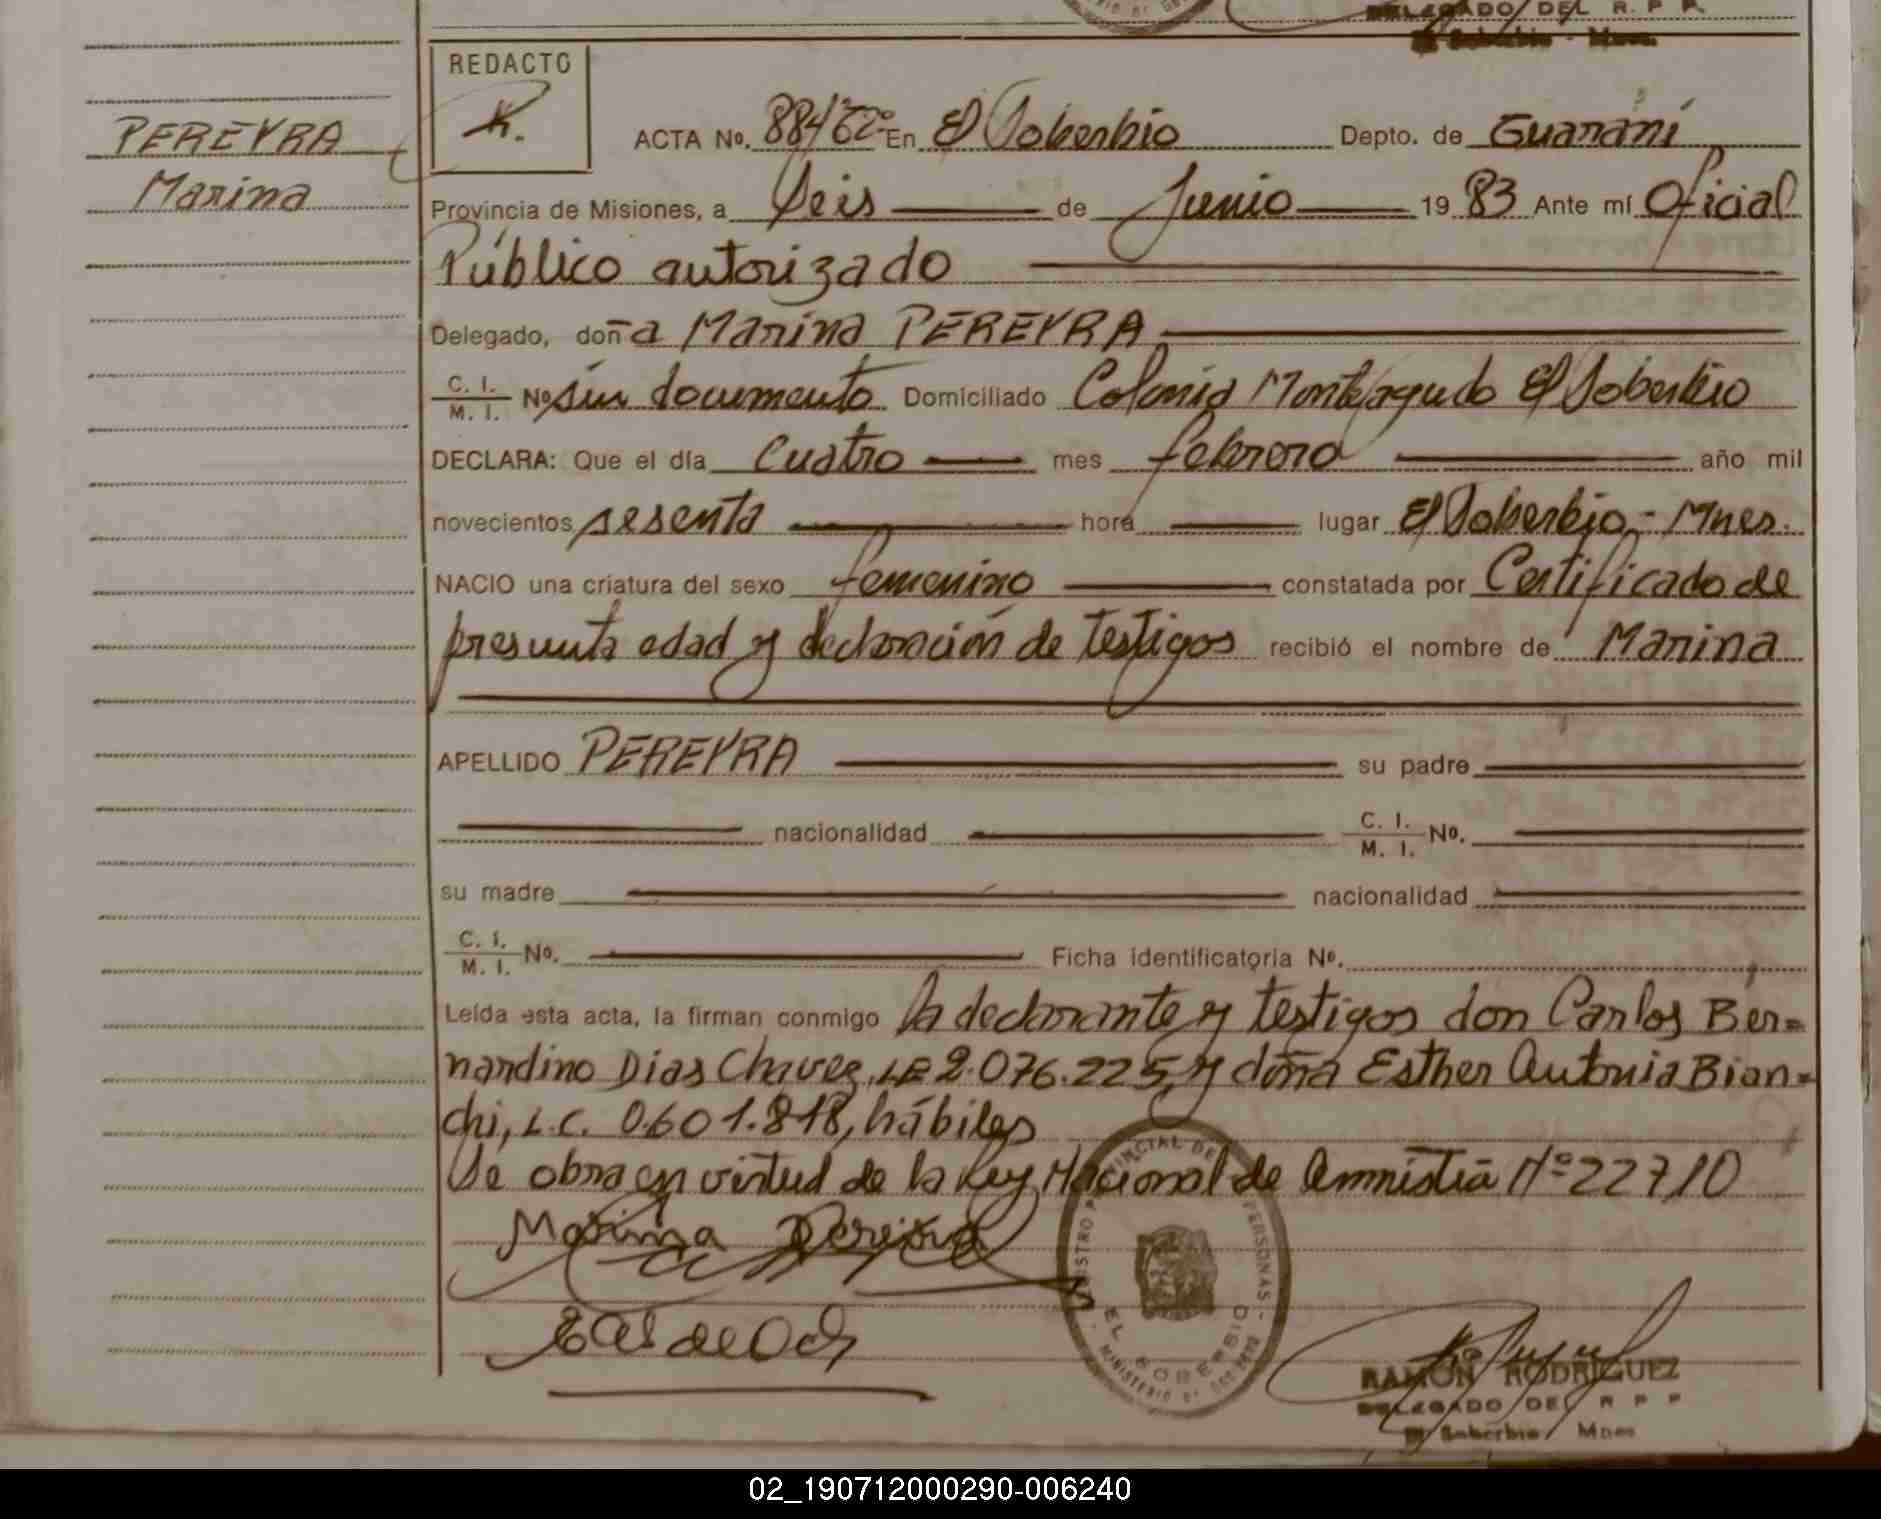 DELEGADO DEL R. P. P.
El Soberbio - Mnes.
REDACTO
PEREYRA
Marina
ACTA Nº. 884 En El Soberbio Depto. de Guaraní
Provincia de Misiones, a Seis de Junio 19 83 Ante mí Oficial
Público autorizado
Delegado, doña Marina PEREYRA
C. I.
M. I. Nº sin documento Domiciliado Colonia Monteagudo El Soberbio
DECLARA: Que el día cuatro mes febrero año mil
novecientos sesenta hora lugar El Soberbio - Mnes.
NACIO una criatura del sexo femenino constatada por Certificado de
presunta edad y declaración de testigos recibió el nombre de Marina
APELLIDO PEREYRA su padre
nacionalidad C. I.
M. I. Nº.
su madre nacionalidad
C. I.
M. I. Nº. Ficha identificatoria Nº.
Leída esta acta, la firman conmigo la declarante y testigos don Carlos Ber=
nardino Dias Chavez, LE 2.076.225, y doña Esther Antonia Bian=
chi, L.C. 0.601.818, hábiles
Se obra en virtud de la Ley Nacional de Amnistía Nº 22710
Marina Pereira
REGISTRO PROVINCIAL DE PERSONAS - EL SOBERBIO - MINISTERIO DE GOBIERNO
RAMON RODRIGUEZ
DELEGADO DEL R P P
El Soberbio Mnes
02_190712000290-006240